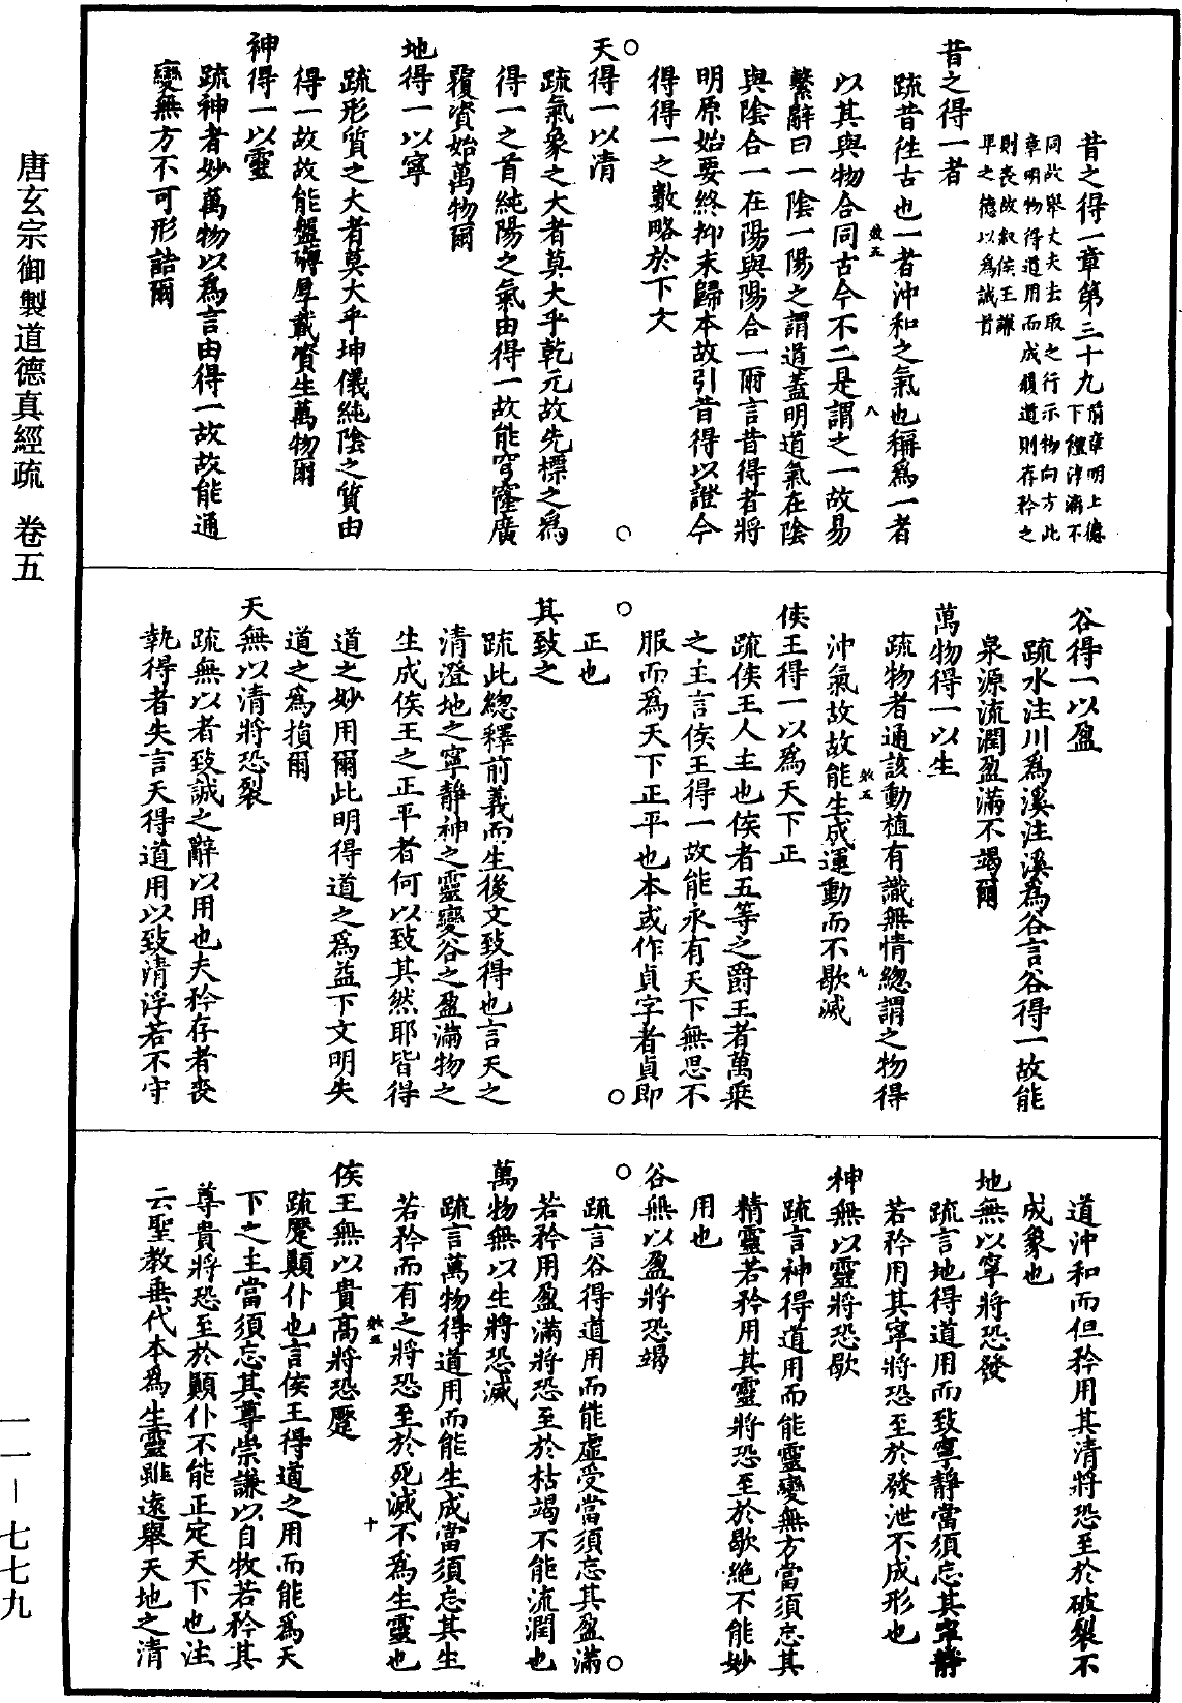 昔之得一章第三十九
前章明上德下經淳漓不
同故舉大夫去取之行示物向方此
章明物得道用而成損道則存矜之
則喪故叙侯王謙
卑之德以為誡首
昔之得一者
疏昔往古也一者沖和之氣也稱為一者
以其與物合同古今不二是謂之一故易
繫辭曰一陰一陽之謂道蓋明道氣在陰
與陰合一在陽與陽合一爾言昔得者將
明原始要終抑末歸本故引昔得以證今
得得一之數略於下文
天得一以清
疏氣象之大者莫大乎乾元故先標之為
得一之首純陽之氣由得一故能穹窿廣
覆資始萬物爾
地得一以寧
疏形質之大者莫大乎坤儀純陰之質由
得一故故能盤礴厚載資生萬物爾
神得一以靈
疏神者妙萬物以為言由得一故故能通
變無方不可形詰爾
谷得一以盈
疏水注川為溪注溪為谷言谷得一故能
泉源流潤盈滿不竭爾
萬物得一以生
疏物者通該動植有識無情總謂之物得
沖氣故故能生成運動而不歇滅
侯王得一以為天下正
疏侯王人主也侯者五等之爵王者萬乘
之主言侯王得一故能永有天下無思不
服而為天下正平也本或作貞字者貞即
正也
其致之
疏此總釋前義而生後文致得也言天之
清澄地之寧靜神之靈變谷之盈滿物之
生成侯王之正平者何以致其然耶皆得
道之妙用爾此明得道之為益下文明失
道之為損爾
天無以清將恐裂
疏無以者致誡之辭以用也夫矜存者喪
執得者失言天得道用以致清浮若不守
道沖和而但矜用其清將恐至於破裂不
成象也
地無以寧將恐發
疏言地得道用而致寧靜當須忘其寧靜
若矜用其寧將恐至於發泄不成形也
神無以靈將恐歇
疏言神得道用而能靈變無方當須忘其
精靈若矜用其靈將恐至於歇絕不能妙
用也
谷無以盈將恐竭
疏言谷得道用而能虛受當須忘其盈滿
若矜用盈滿將恐至於枯竭不能流潤也
萬物無以生將恐滅
疏言萬物得道用而能生成當須忘其生
若矜而有之將恐至於死滅不為生靈也
侯王無以貴高將恐蹷
疏蹷顛仆也言侯王得道之用而能為天
下之主當須忘其尊崇謙以自牧若矜其
尊貴將恐至於顛仆不能正定天下也注
云聖教垂代本為生靈雖遠舉天地之清
唐玄宗御製道德真經疏　卷五
一一－七七九